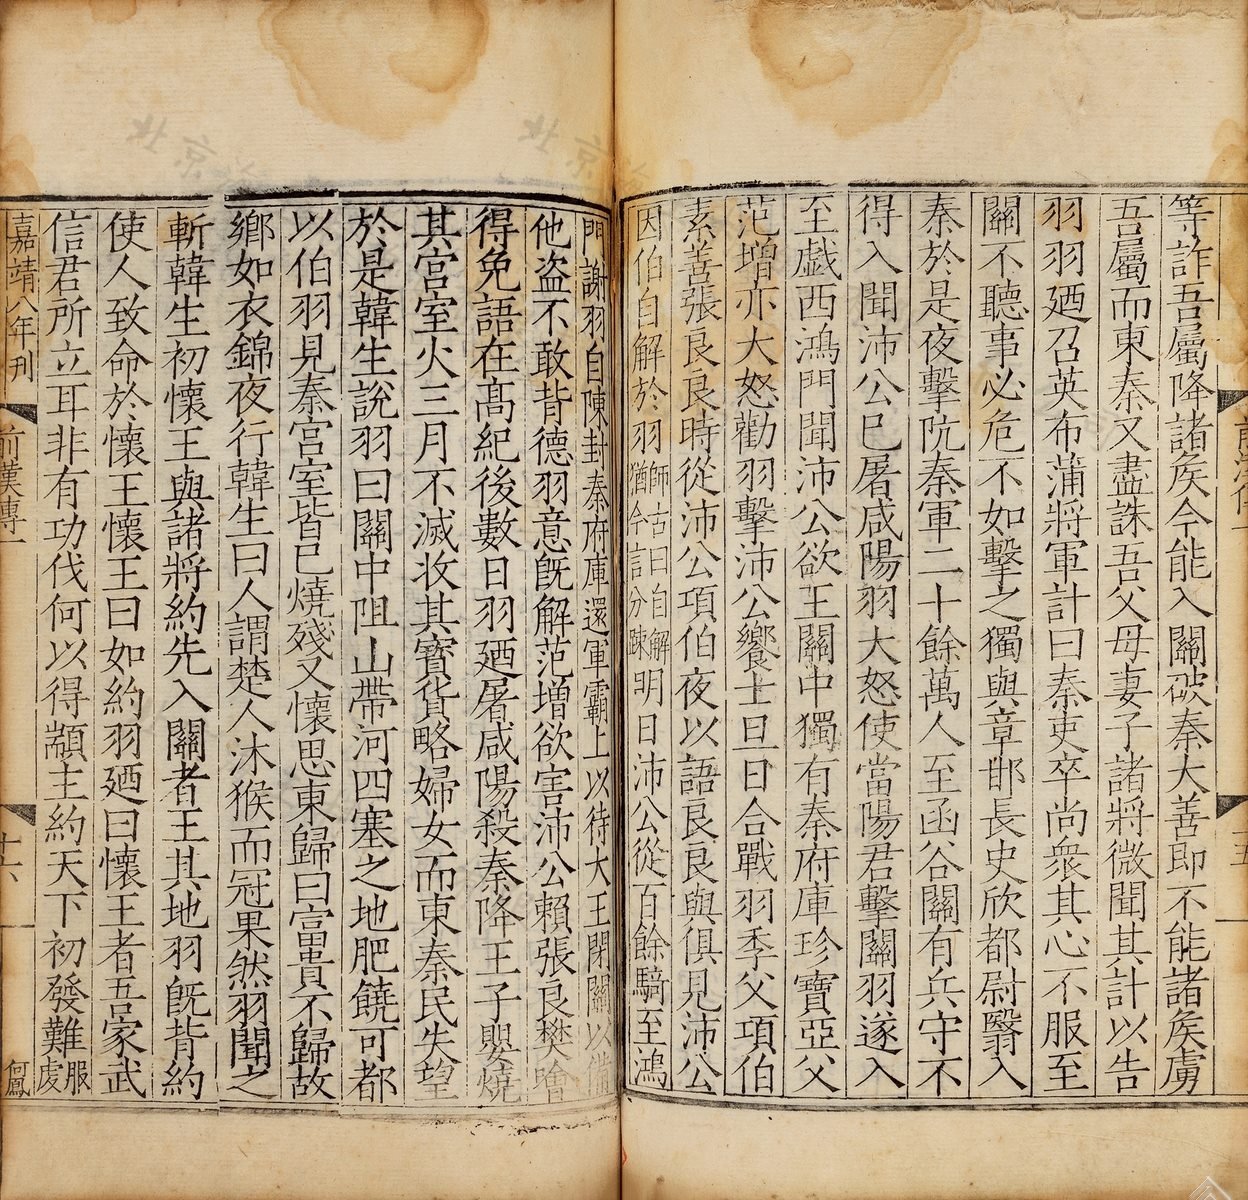 等詐吾屬降諸矦今能入關破秦大善即不能諸矦虜
吾屬而東秦又盡誅吾父母妻子諸將微聞其計以告
羽羽廼召英布蒲將軍計曰秦吏卒尚衆其心不服至
關不聽事必危不如擊之獨與章邯長史欣都尉翳入
秦於是夜擊阬秦軍二十餘萬人至函谷關有兵守不
得入聞沛公巳屠咸陽羽大怒使當陽君擊關羽遂入
至戲西鴻門聞沛公欲王關中獨有秦府庫珍寶亞父
范增亦大怒勸羽擊沛公饗士旦日合戰羽季父項伯
素善張良良時從沛公項伯夜以語良良與俱見沛公
因伯自解於羽師古曰自解猶今言分疎明日沛公從百餘騎至鴻
門謝羽自陳封秦府庫還軍霸上以待大王閉關以備
他盗不敢背德羽意旣解范增欲害沛公賴張良樊噲
得免語在髙紀後數日羽廼屠咸陽殺秦降王子嬰燒
其宮室火三月不滅收其寶貨略婦女而東秦民失望
於是韓生說羽曰關中阻山帶河四塞之地肥饒可都
以伯羽見秦宮室皆巳燒殘又懷思東歸曰富貴不歸故
鄉如衣錦夜行韓生曰人謂楚人沐猴而冠果然羽聞之
斬韓生初懷王與諸將約先入關者王其地羽旣背約
使人致命於懷王懷王曰如約羽廼曰懷王者吾家武
信君所立耳非有功伐何以得顓主約天下初發難服虔
嘉靖八年刊
前漢傳一
十六
何鳳